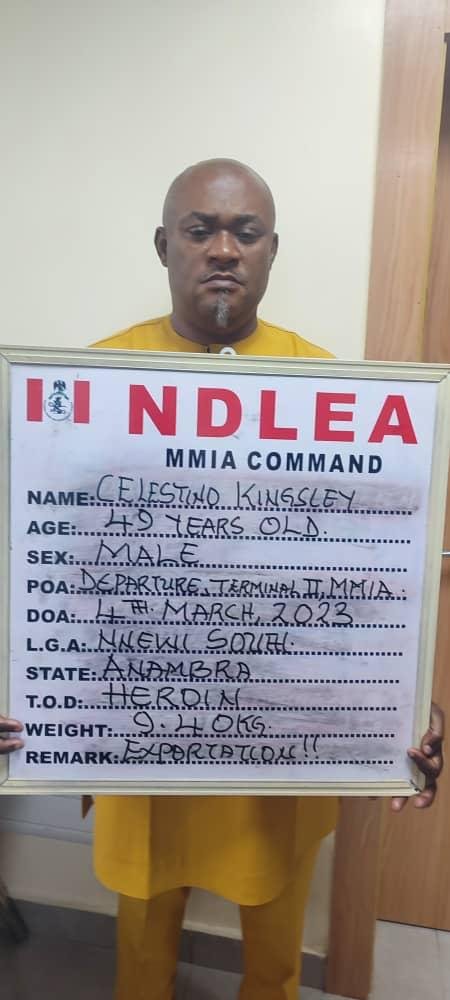 NDLEA
MMIA COMMAND
NAME: CELESTINO KINGSLEY
AGE: 49 YEARS OLD.
SEX: MALE
POA: DEPARTURE, TERMINAL II, MMIA.
DOA: 4TH MARCH, 2023
L.G.A: NNEWI SOUTH.
STATE: ANAMBRA
T.O.D: HEROIN
WEIGHT: 9.40KG.
REMARK: EXPORTATION!!